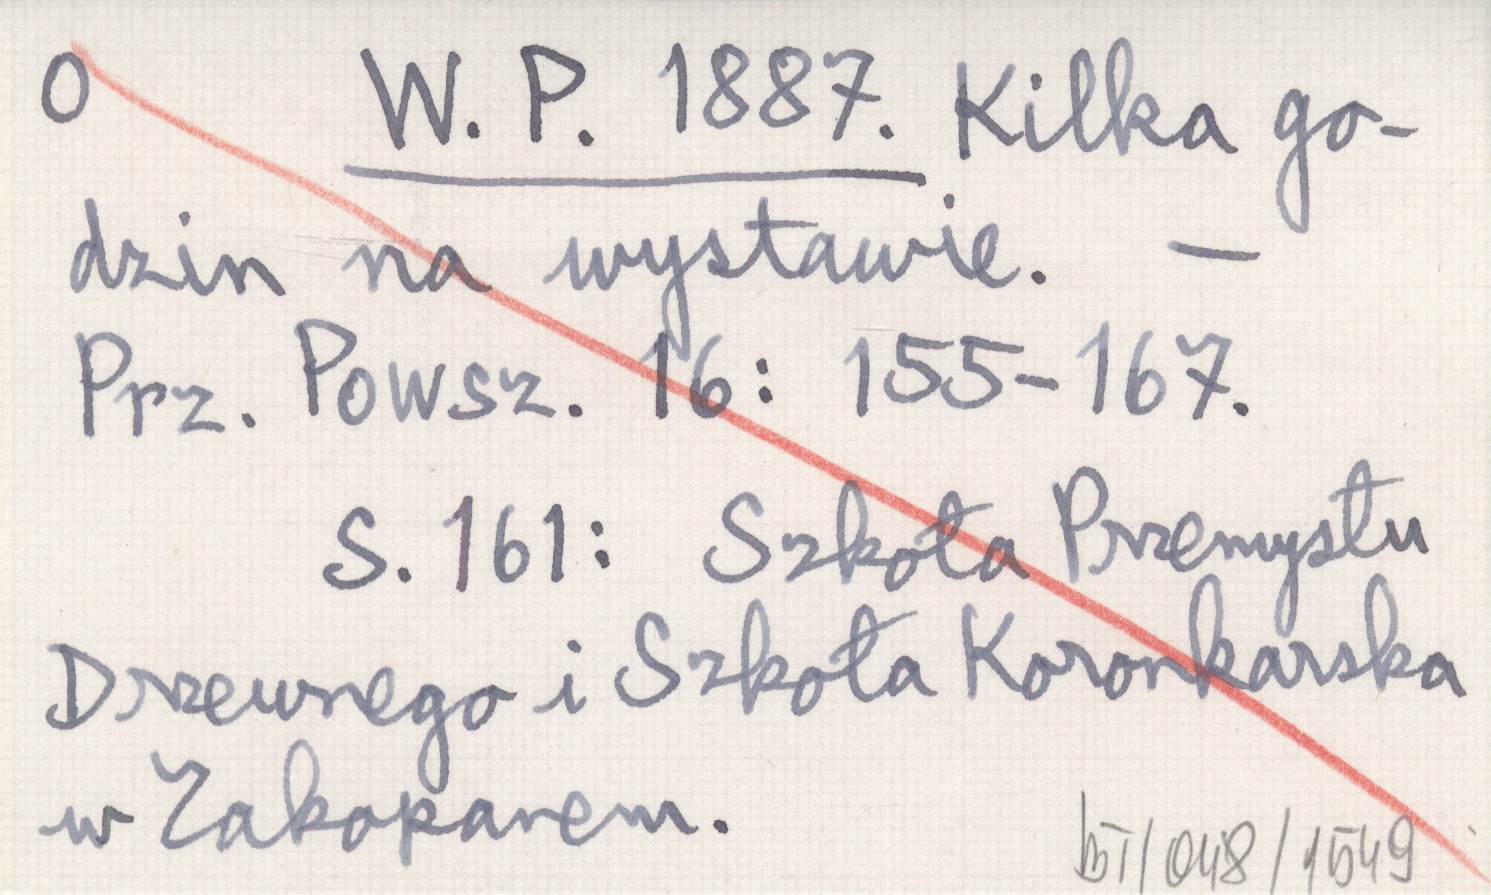 O W. P. 1887. Kilka go-
dzin na wystawie. —
Prz. Powsz. 16: 155-167.
S. 161: Szkoła Przemysłu
Drzewnego i Szkoła Koronkarska
w Zakopanem.
bT/048/1549